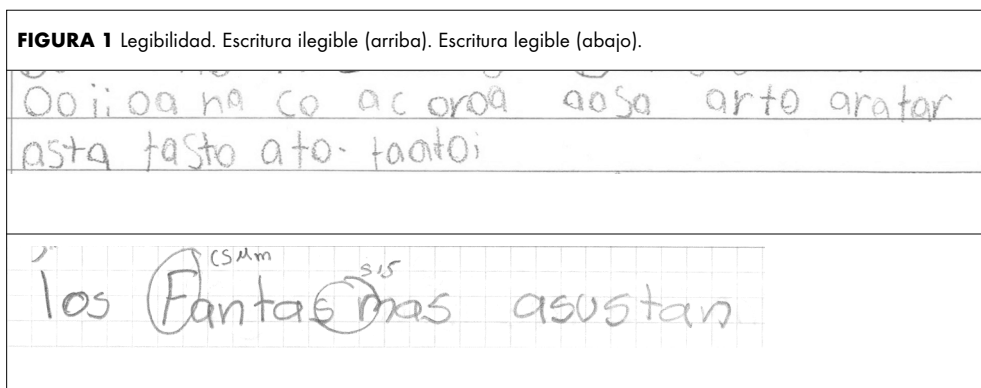 FIGURA 1 Legibilidad. Escritura ilegible (arriba). Escritura legible (abajo).
Ooii oa na co ac oroa aosa arto aratar
asta tasto ato. taatoi
los Fantasmas asustan